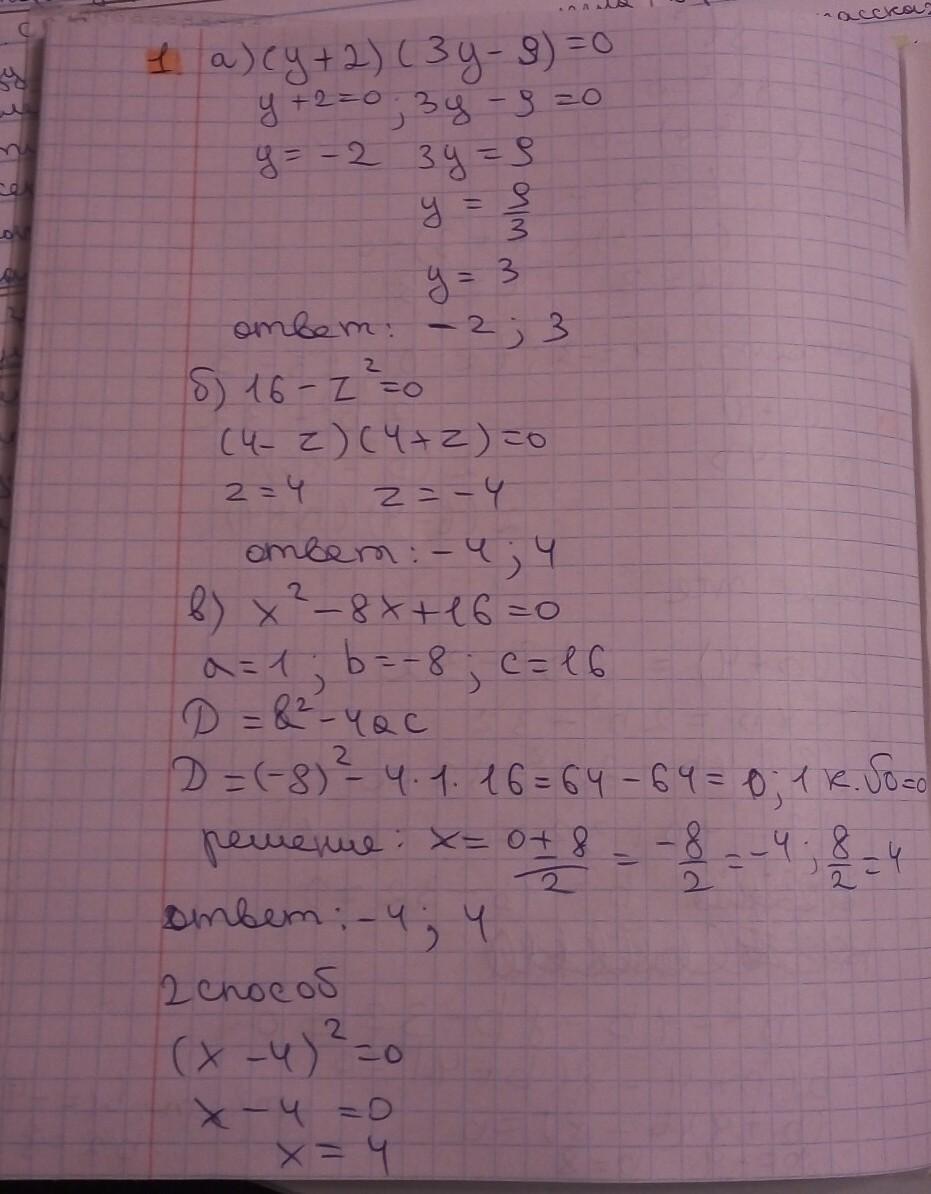 1 а) (y+2)(3y-9)=0
y+2=0; 3y-9=0
y=-2 3y=9
y=9/3
y=3
ответ: -2; 3
б) 16-z²=0
(4-z)(4+z)=0
z=4 z=-4
ответ: -4; 4
в) x²-8x+16=0
a=1; b=-8; c=16
D=b²-4ac
D=(-8)²-4·1·16=64-64=0; 1 к. √0=0
решение: x=0±8/2=-8/2=-4; 8/2=4
ответ: -4; 4
2 способ
(x-4)²=0
x-4=0
x=4